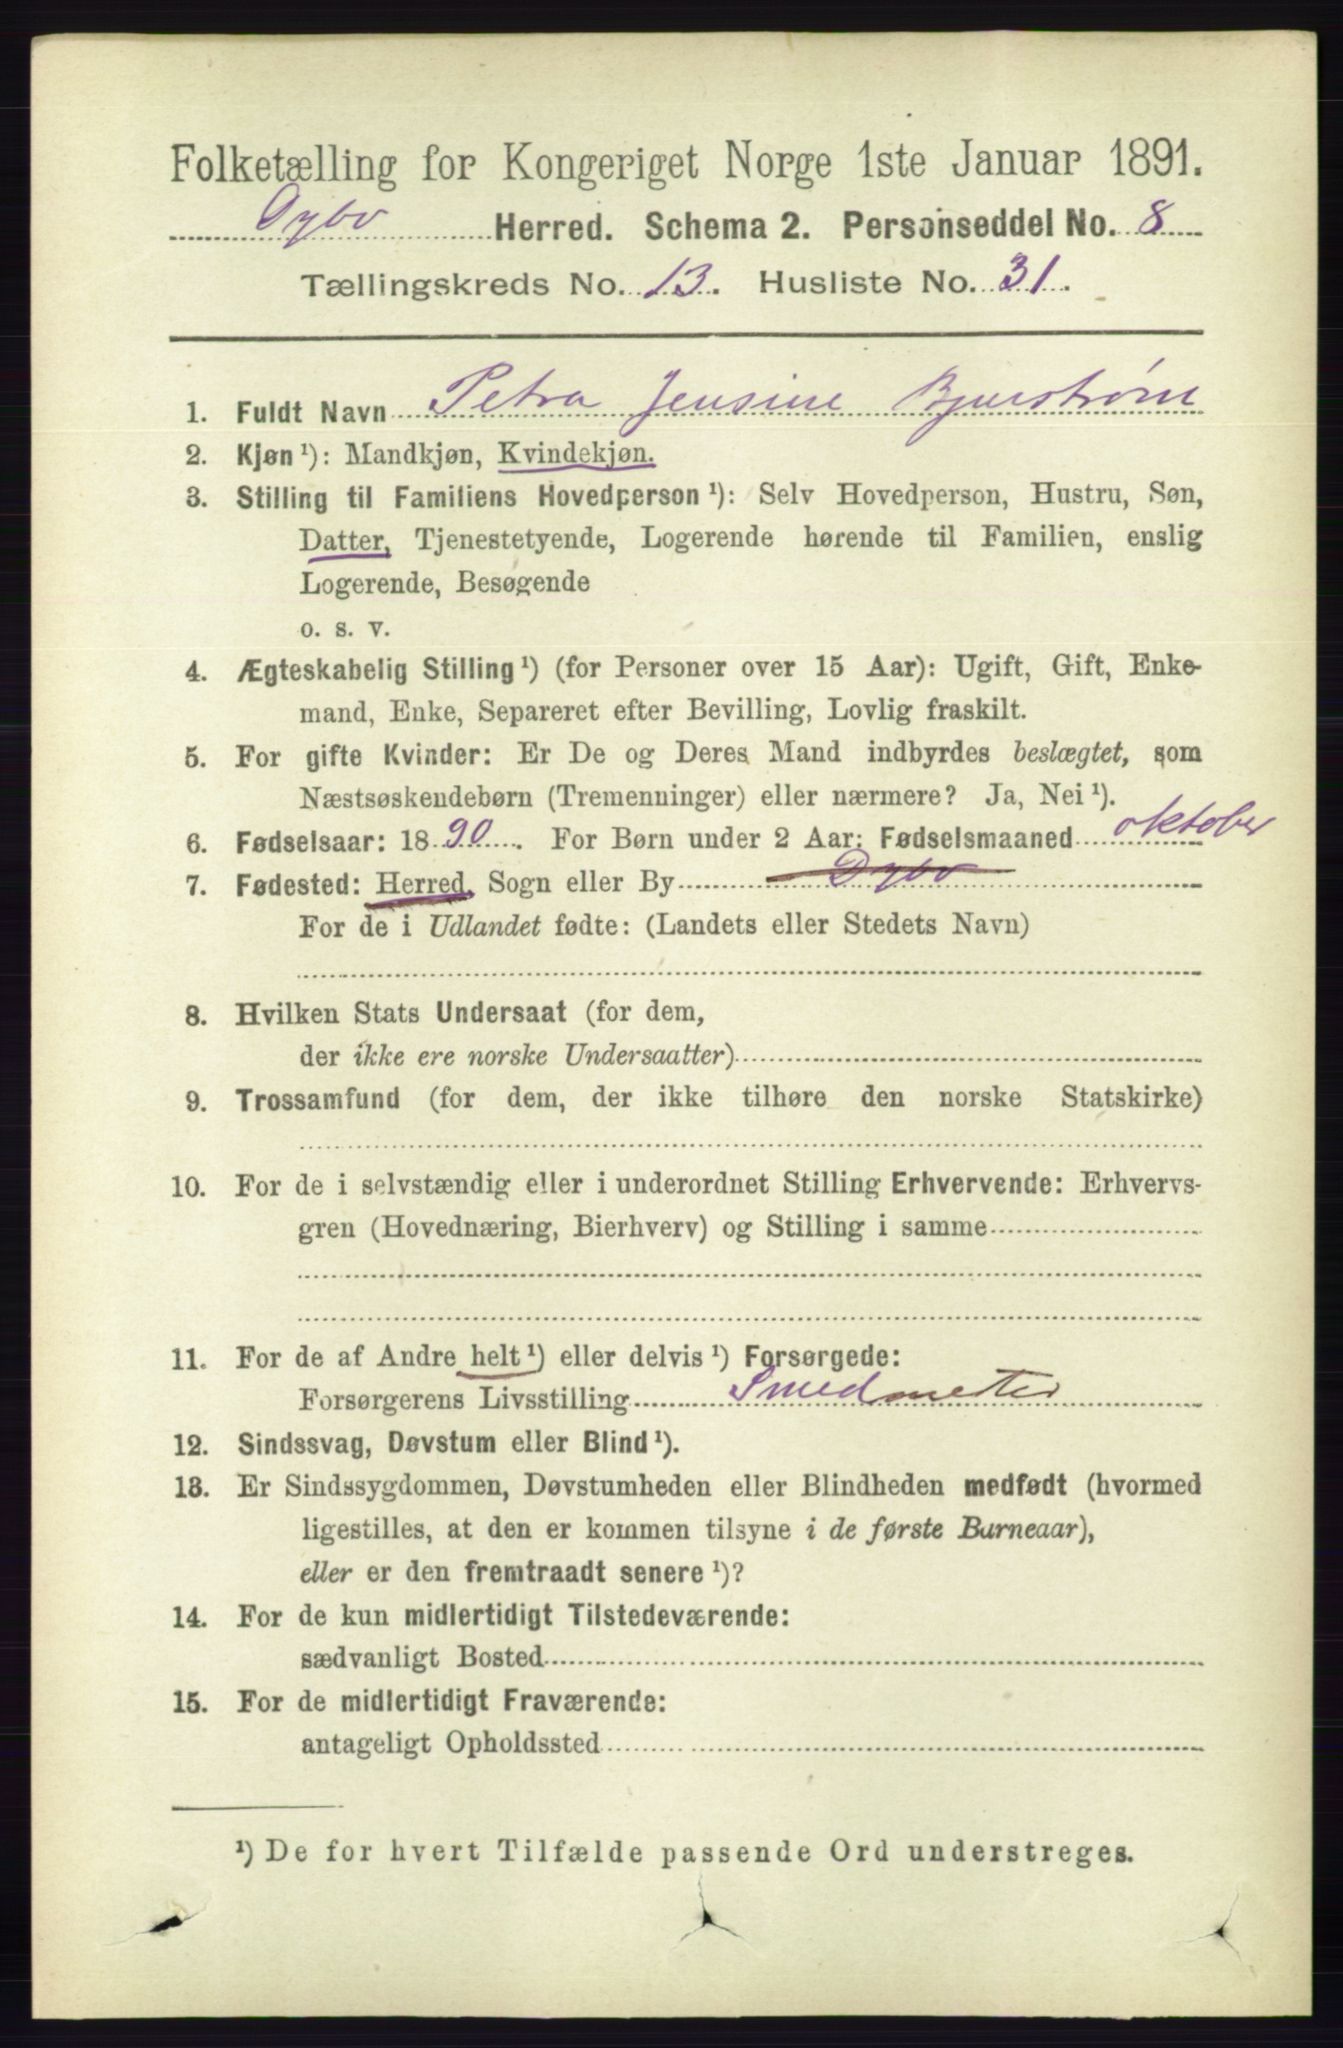 Folketælling for Kongeriget Norge 1ste Januar 1891.
Dybo Herred. Schema 2. Personseddel No. 8
Tællingskreds No. 13. Husliste No. 31.
1. Fuldt Navn Petra Jensine Bjurstrøm
2. Kjøn ¹): Mandkjøn, Kvindekjøn.
3. Stilling til Familiens Hovedperson ¹): Selv Hovedperson, Hustru, Søn,
Datter, Tjenestetyende, Logerende hørende til Familien, enslig
Logerende, Besøgende
o. s. v.
4. Ægteskabelig Stilling ¹) (for Personer over 15 Aar): Ugift, Gift, Enke-
mand, Enke, Separeret efter Bevilling, Lovlig fraskilt.
5. For gifte Kvinder: Er De og Deres Mand indbyrdes beslægtet, som
Næstsøskendebørn (Tremenninger) eller nærmere? Ja, Nei ¹).
6. Fødselsaar: 1890. For Børn under 2 Aar: Fødselsmaaned oktober
7. Fødested: Herred, Sogn eller By Dybo
For de i Udlandet fødte: (Landets eller Stedets Navn)
8. Hvilken Stats Undersaat (for dem,
der ikke ere norske Undersaatter)
9. Trossamfund (for dem, der ikke tilhøre den norske Statskirke)
10. For de i selvstændig eller i underordnet Stilling Erhvervende: Erhvervs-
gren (Hovednæring, Bierhverv) og Stilling i samme
11. For de af Andre helt ¹) eller delvis ¹) Forsørgede:
Forsørgerens Livsstilling Smedmester
12. Sindssvag, Døvstum eller Blind ¹).
13. Er Sindssygdommen, Døvstumheden eller Blindheden medfødt (hvormed
ligestilles, at den er kommen tilsyne i de første Barneaar),
eller er den fremtraadt senere ¹)?
14. For de kun midlertidigt Tilstedeværende:
sædvanligt Bosted
15. For de midlertidigt Fraværende:
antageligt Opholdssted
¹) De for hvert Tilfælde passende Ord understreges.